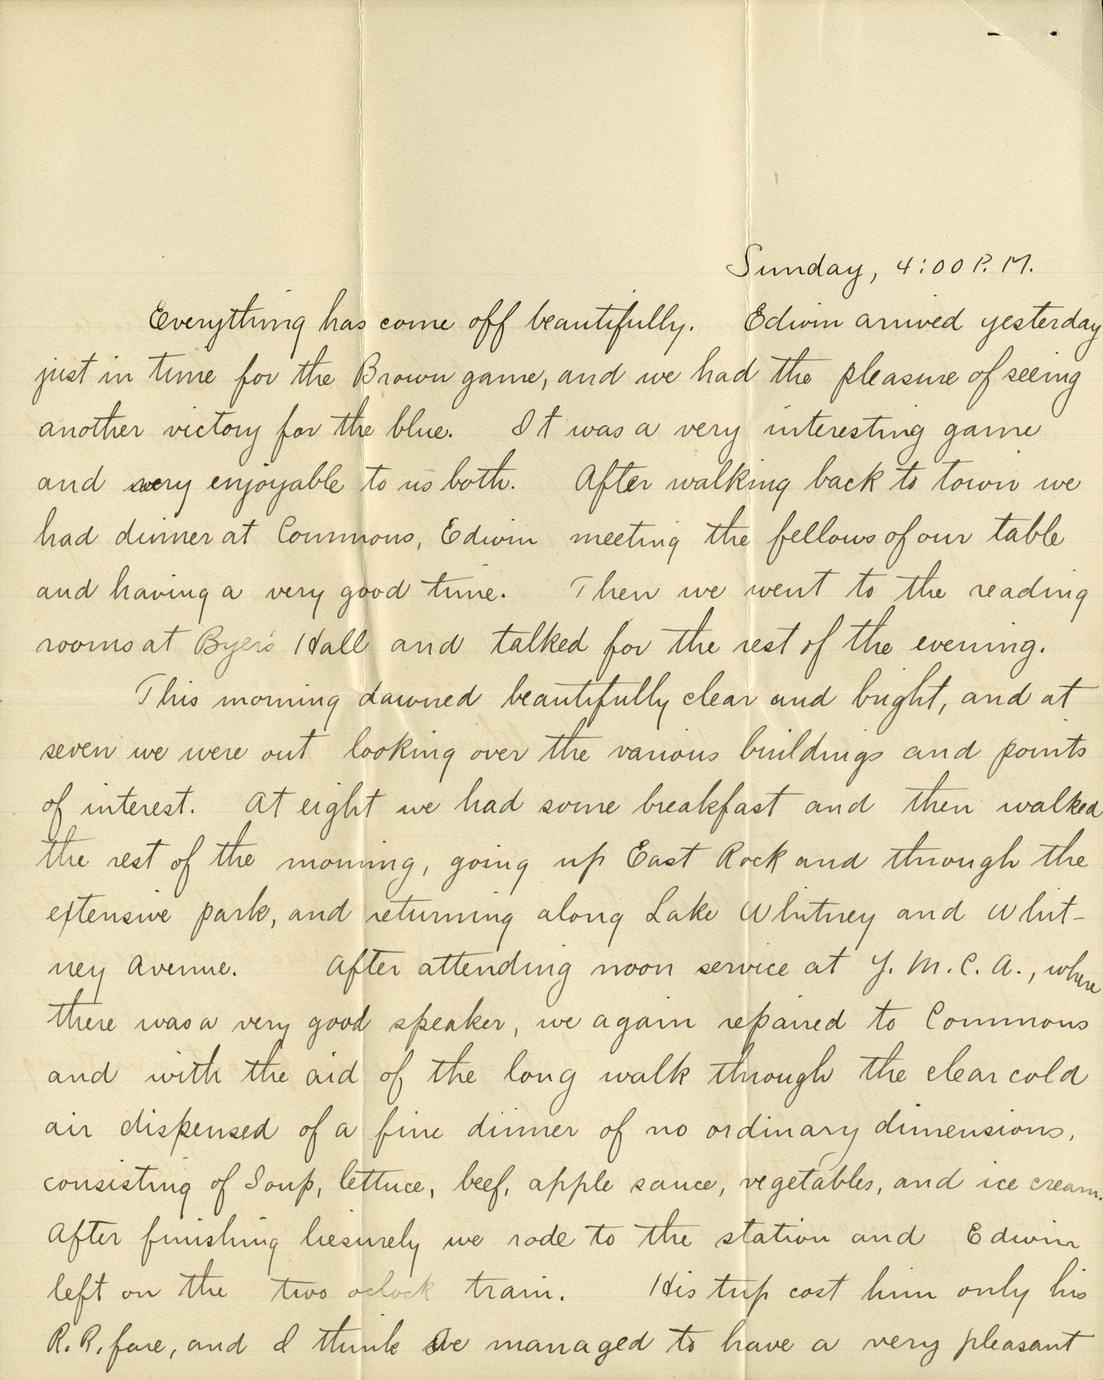 Sunday, 4:00 P. M.
Everything has come off beautifully. Edwin arrived yesterday
just in time for the Brown game, and we had the pleasure of seeing
another victory for the blue. It was a very interesting game
and very enjoyable to us both. After walking back to town we
had dinner at Commons, Edwin meeting the fellows of our table
and having a very good time. Then we went to the reading
rooms at Byers Hall and talked for the rest of the evening.
This morning dawned beautifully clear and bright, and at
seven we were out looking over the various buildings and points
of interest. At eight we had some breakfast and then walked
the rest of the morning, going up East Rock and through the
extensive park, and returning along Lake Whitney and Whit-
ney Avenue. After attending noon service at Y. M. C. A., where
there was a very good speaker, we again repaired to Commons
and with the aid of the long walk through the clear cold
air dispensed of a fine dinner of no ordinary dimensions,
consisting of Soup, lettuce, beef, apple sauce, vegetables, and ice cream.
After finishing liesurely we rode to the station and Edwin
left on the two oclock train. His trip cost him only his
R. R. fare, and I think we managed to have a very pleasant